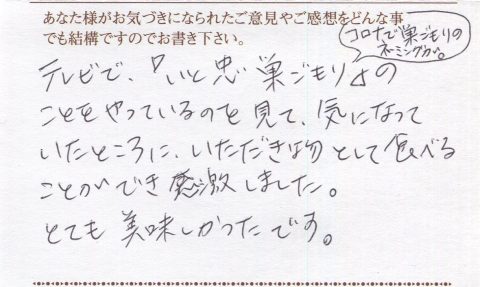 あなた様がお気づきになられたご意見やご感想をどんな事
でも結構ですのでお書き下さい。
コロナで巣ごもりの
ネーミングが。
テレビで、『いと忠 巣ごもり』の
ことをやっているのを見て、気になって
いたところに、いただき物として食べる
ことができ感激しました。
とても美味しかったです。